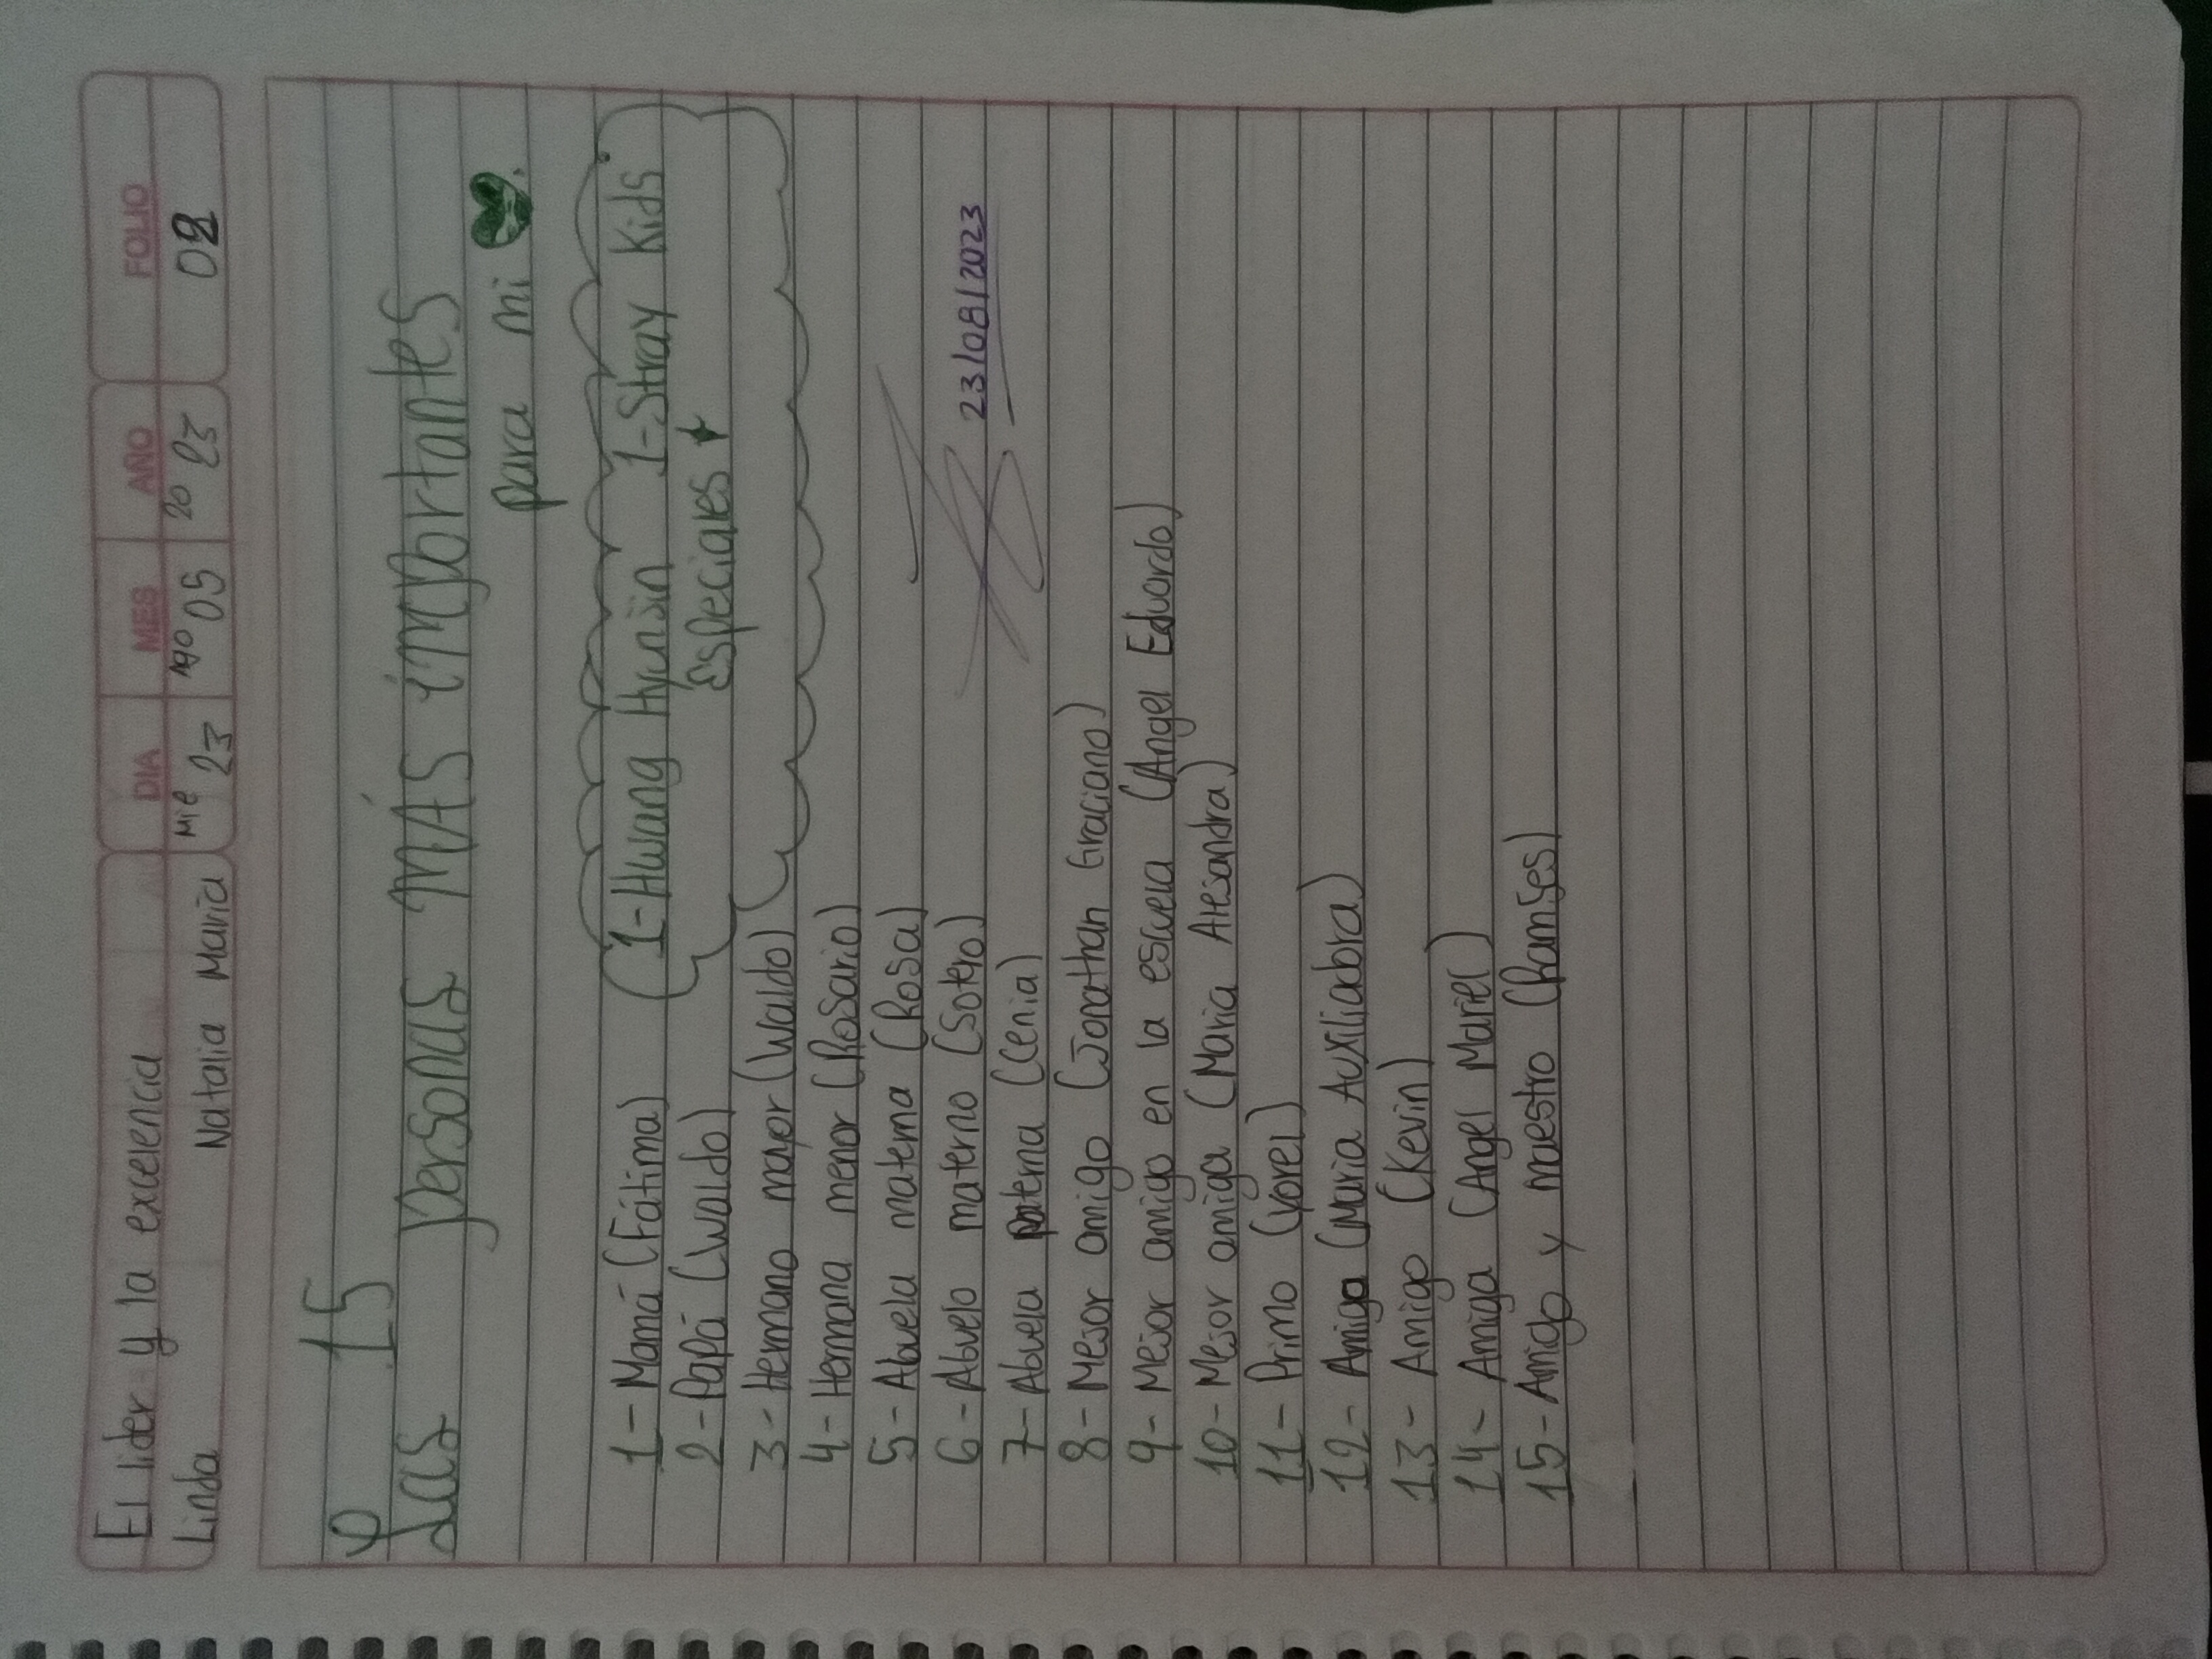 El lider y la excelencia
Linda Natalia María
DIA MES AÑO FOLIO
Mie 23 Ago 05 20 23 02
Las 15
personas MÁS importantes
para mi
1- Mamá (Fátima)
2- Papá (Waldo)
3- Hermano mayor (Waldo)
4- Hermana menor (Rosario)
5- Abuela materna (Rosa)
6- Abuelo materno (Sotero)
7- Abuela paterna (Cenia)
8- Mejor amigo (Jonathan Graciano)
9- Mejor amigo en la escuela (Angel Eduardo)
10- Mejor amiga (Maria Alejandra)
11- Primo (Yorel)
12- Amiga (Maria Auxiliabra)
13- Amigo (Kevin)
14- Amiga (Angel Mariel)
15- Amigo y maestro (Ramses)
1-Hwang Hyunjin 1-Stray Kids
Especiales
23/08/2023